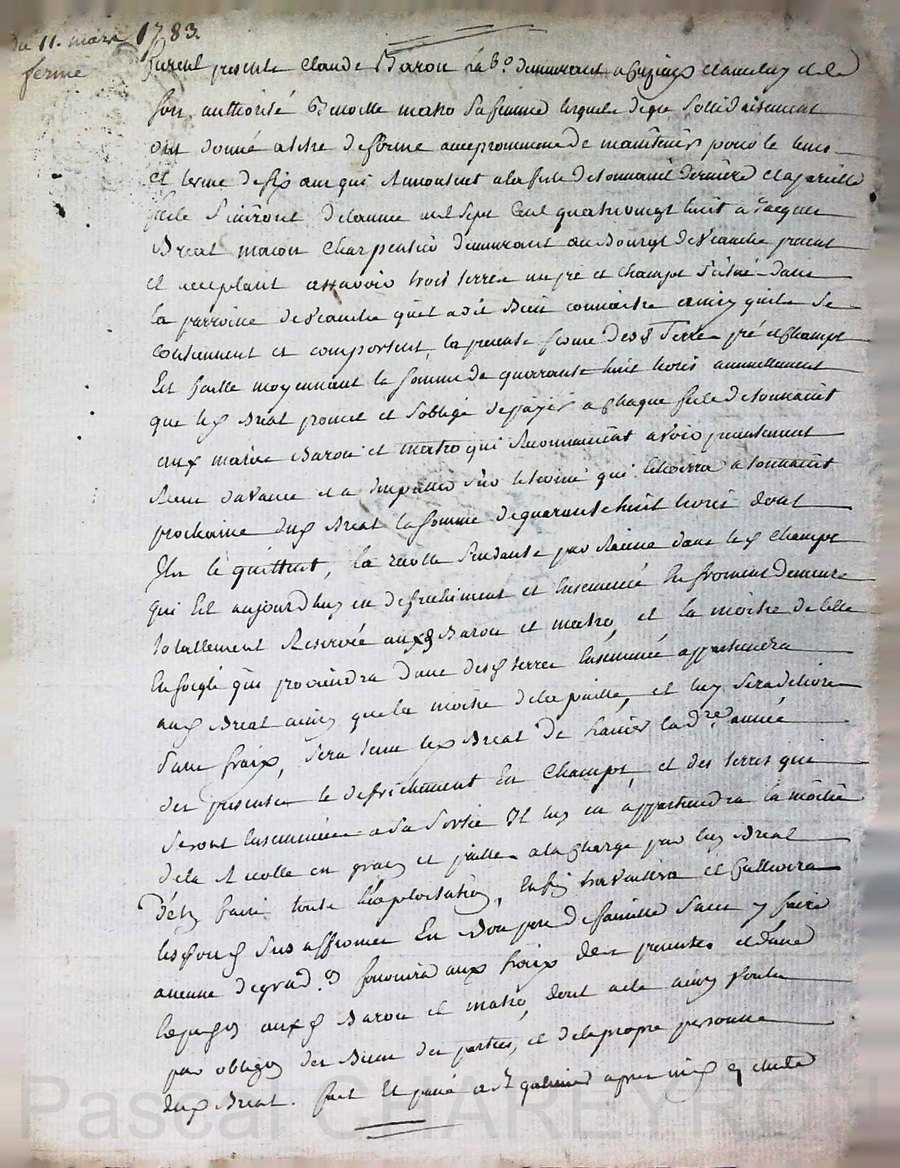 du 11. mars 1783
ferme
furent presents Claude Baron lab.r demeurant
son authorité matro sa femme lesquels de gré sollidairement
ont donné a titre de ferme avec promesse de maintenir pour le tems
et terme de six ans qui à la fete de toussaint dernière et a pareille
fete finiront de l'année mil sept cent quatrevingt huit a Jacques
Breat macon charpentier demeurant au Bourg de present
et acceptant assavoir trois terres un pré et champt situé dans
la parroisse de qu'il a dit bien connoitre ainsy qu'ils se
contiennent et comportent, la presente ferme des d terres pré et champt
Est faitte moyennant la somme de quarante huit livres annuellement
que led Breat promet et s'oblige de payer a chaque fete de toussaint
aux Baron et matro qui Reconnoissent avoir presentement
Receu d'avance et a sur le terme qui a toussaint
prochaine dud Breat la somme de quarante huit livres dont
Ils le quittent, la recolte pendante par Racine dans led champt
qui est aujourd'huy en defrichement et Ensemencé En froment demeure
totallement Reservée auxd Baron et matro, et la moitié de celle
En seigle qui proviendra d'une desd terres Ensemencé appartiendra
aud Breat ainsy que la moitié de la paille, et luy sera delivré
sans fraix, sera tenu led Breat de la d.re année
des presentes le defrichement En champt, et des terres qui
seront Ensemencées a sa sortie Il luy en appartiendra la moitié
de la Recolte en grain et paille a la charge par led Breat
d'en faire toute l'exploitation, Enfin travaillera et cultivera
lesd fonds sus affermés En bon pere de famille sans y faire
aucune degrad.on fournira aux fraix des presentes et d'une
auxd Baron et matro, dont acte ainsy voulu
par obligon des Biens des parties, et de la propre personne
dud Breat. fait et passé a
Pascal CHAREYRON